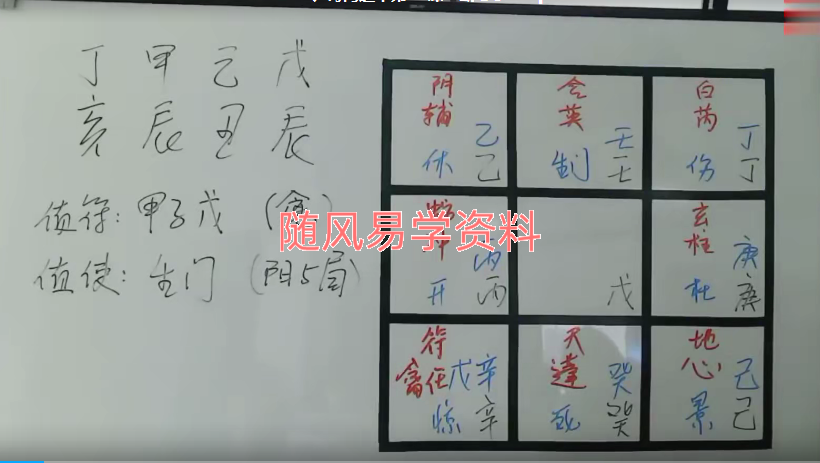 丁 甲 己 戊
亥 辰 丑 辰
值符: 甲子戊 (禽)
值使: 生门 (阴5局)
随风易学资料
阴
辅 乙
休 乙
合
英 壬
生 壬
白
芮 丁
伤 丁
丙
开 丙
戊
玄
柱 庚
杜 庚
符
禽任 戊辛
惊 辛
天
蓬 癸
死 癸
地
心 己
景 己